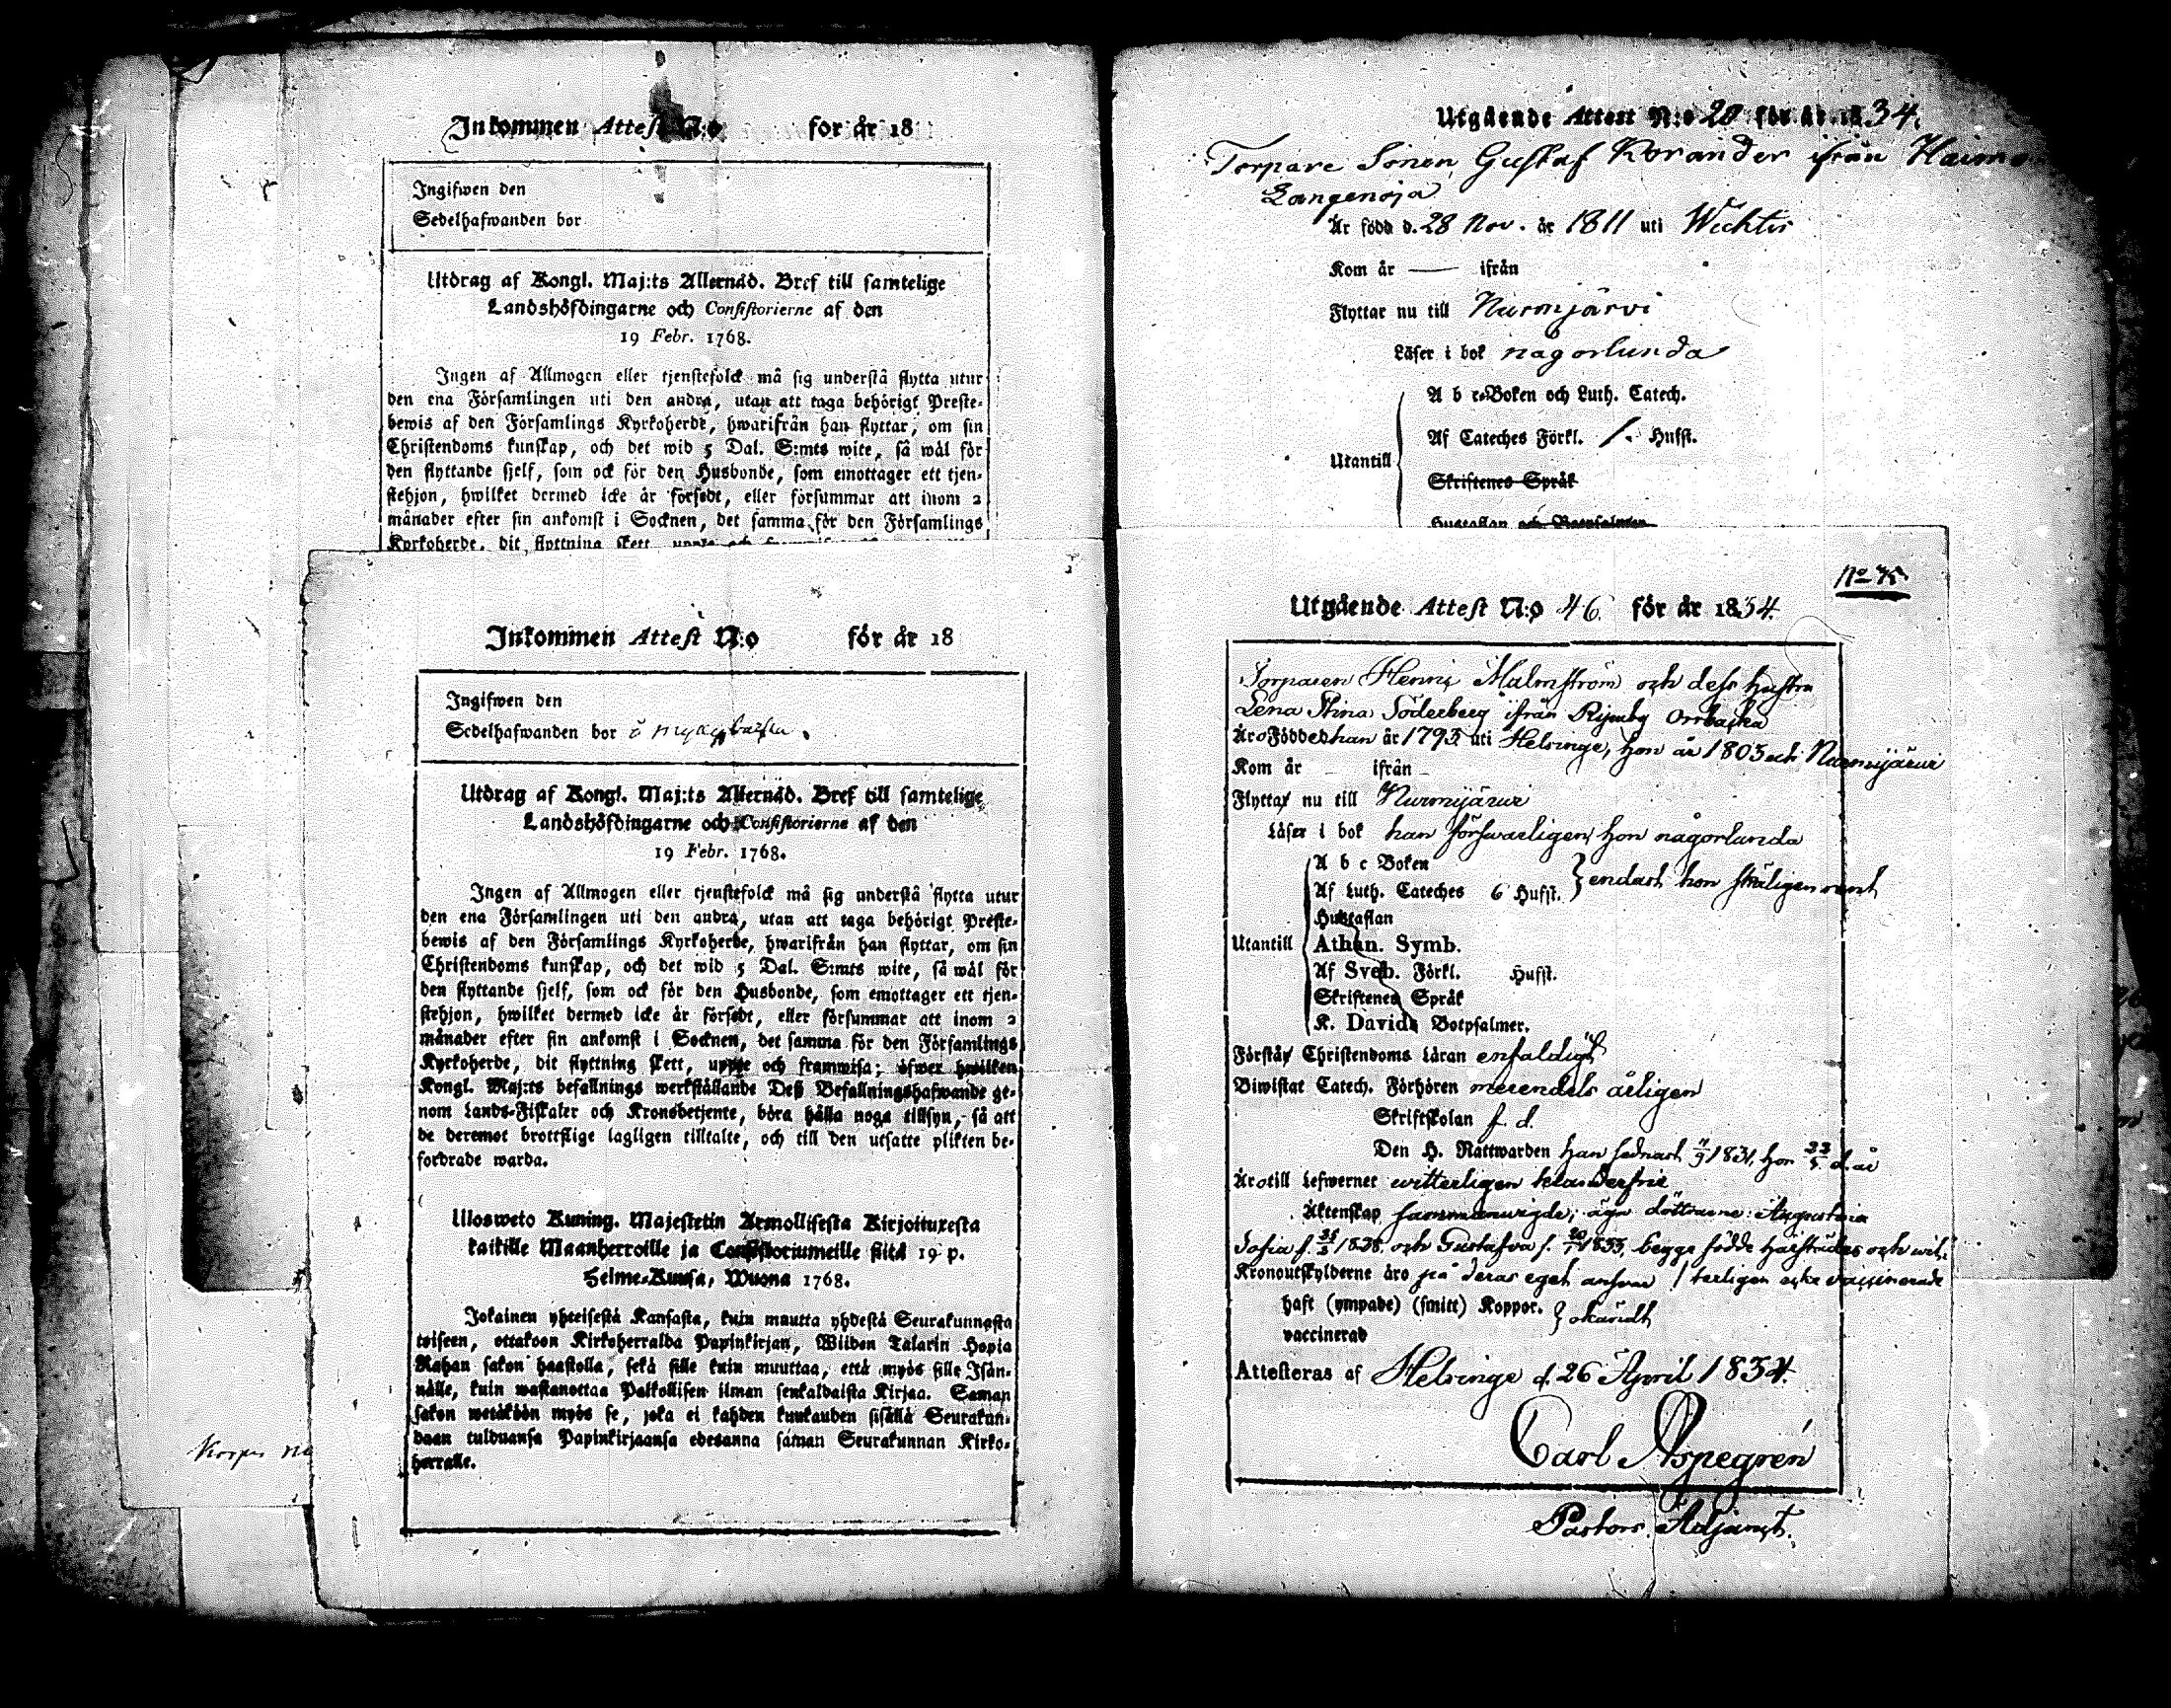 Inkommen Attest N:o för år 18
Ingifwen den
Sedelhafwanden bor
Utdrag af Kongl. Maj:ts Allernåd. Bref till samtelige
Landshöfdingarne och Consistorierne af den
19 Febr. 1768.
Ingen af Allmogen eller tjenstefolck må sig understå flytta utur
den ena Församlingen uti den andra, utan att taga behörigt Preste-
bewis af den Församlings Kyrkoherde, hwarifrån han flyttar, om sin
Christendoms kunskap, och det wid 5 Dal. S:mts wite, så wäl för
den flyttande sjelf, som ock för den Husbonde, som emottager ett tjen-
stehjon, hwilket dermed icke är försedt, eller försummar att inom 2
månader efter sin ankomst i Socknen, det samma för den Församlings
Kyrkoherde, dit flyttning skett,
Inkommen Attest N:o för år 18
Ingifwen den
Sedelhafwanden bor
Utdrag af Kongl. Maj:ts Allernåd. Bref till samtelige
Landshöfdingarne och Consistorierne af den
19 Febr. 1768.
Ingen af Allmogen eller tjenstefolck må sig understå flytta utur
den ena Församlingen uti den andra, utan att taga behörigt Preste-
bewis af den Församlings Kyrkoherde, hwarifrån han flyttar, om sin
Christendoms kunskap, och det wid 5 Dal. S:mts wite, så wäl för
den flyttande sjelf, som ock för den Husbonde, som emottager ett tjen-
stehjon, hwilket dermed icke är försedt, eller försummar att inom 2
månader efter sin ankomst i Socknen, det samma för den Församlings
Kyrkoherde, dit flyttning skett, uppte och framwisa; öfwer hwilken
Kongl. Maj:ts befallnings werkställande Deß Befallningshafwande ge-
nom Lands-Fiskaler och Kronobetjente, böra hålla noga tillsyn, så att
de deremot brottslige lagligen tilltalte, och till den utsatte plikten be-
fordrade warda.
Ulosweto Kuning. Majestetin Armollisesta Kirjoituxesta
kaikille Maanherroille ja Consistoriumeille siitä 19 p.
Helme-Kuusa, Wuona 1768.
Jokainen yhteisestä Kansasta, kuin muutta yhdestä Seurakunnasta
toiseen, ottakoon Kirkoherralda Papinkirjan, Wiiden Talarin Hopia
Rahan sakon haastolla, sekä sille kuin muuttaa, että myös sille Isän-
nälle, kuin wastanottaa Palkollisen ilman senkaldaista Kirjaa. Saman
sakon wetäköön myös se, joka ei kahden kuukauden sisällä Seurakun-
daan tulduansa Papinkirjaansa edesanna saman Seurakunnan Kirko-
herralle.
Utgående Attest N:o 20 för år 1834.
Torpare Sonen Gustaf Korander ifrån
Långenoja
Är född d. 28 Nov. år 1811 uti Wichtis
Kom år — ifrån
Flyttar nu till Nurmjärvi
Läser i bok någorlunda
Utantill
A b c-Boken och Luth. Catech.
Af Cateches Förkl. /. Hufst.
Skriftenes Språk
Hustaflan och Botpsalmer
Utgående Attest N:o 46. för år 1834.
Torparen Henric Malmström och dess hustru
Lena Stina Söderberg ifrån
Äro Födde han år 1793 uti Helsinge, hon år 1803 uti Nurmijärvi
Kom år – ifrån –
Flytta nu till Nurmijärvi
Läser i bok han försvarligen, hon någorlunda
Utantill
A b c Boken
Af Luth. Cateches 6 Hufst. } endast hon
Hustaflan
Athan. Symb.
Af Sveb. Förkl. Hufst.
Skriftenes Språk
K. Davids Botpsalmer.
Förstå Christendoms Läran enfaldigt
Biwistat Catech. Förhören merendels årligen
Skriftskolan f. d.
Den H. Nattwarden han sednast 1831, hon d. år
Äro till Lefwernet witterligen klanderfrie
Äktenskap sammanwigde, äga döttrarne: Augustina
Sofia f. och Gustafva f. 1833, begge födde härstädes och wit-
Kronoutskylderne äro på deras eget ansvar / terligen icke vaccinerade
haft (ympade) (smitt) Koppor. } okändt
vaccinerad
Attesteras af Helsinge d. 26 April 1834.
Carl Aspegrén
Pastors Adjunct.